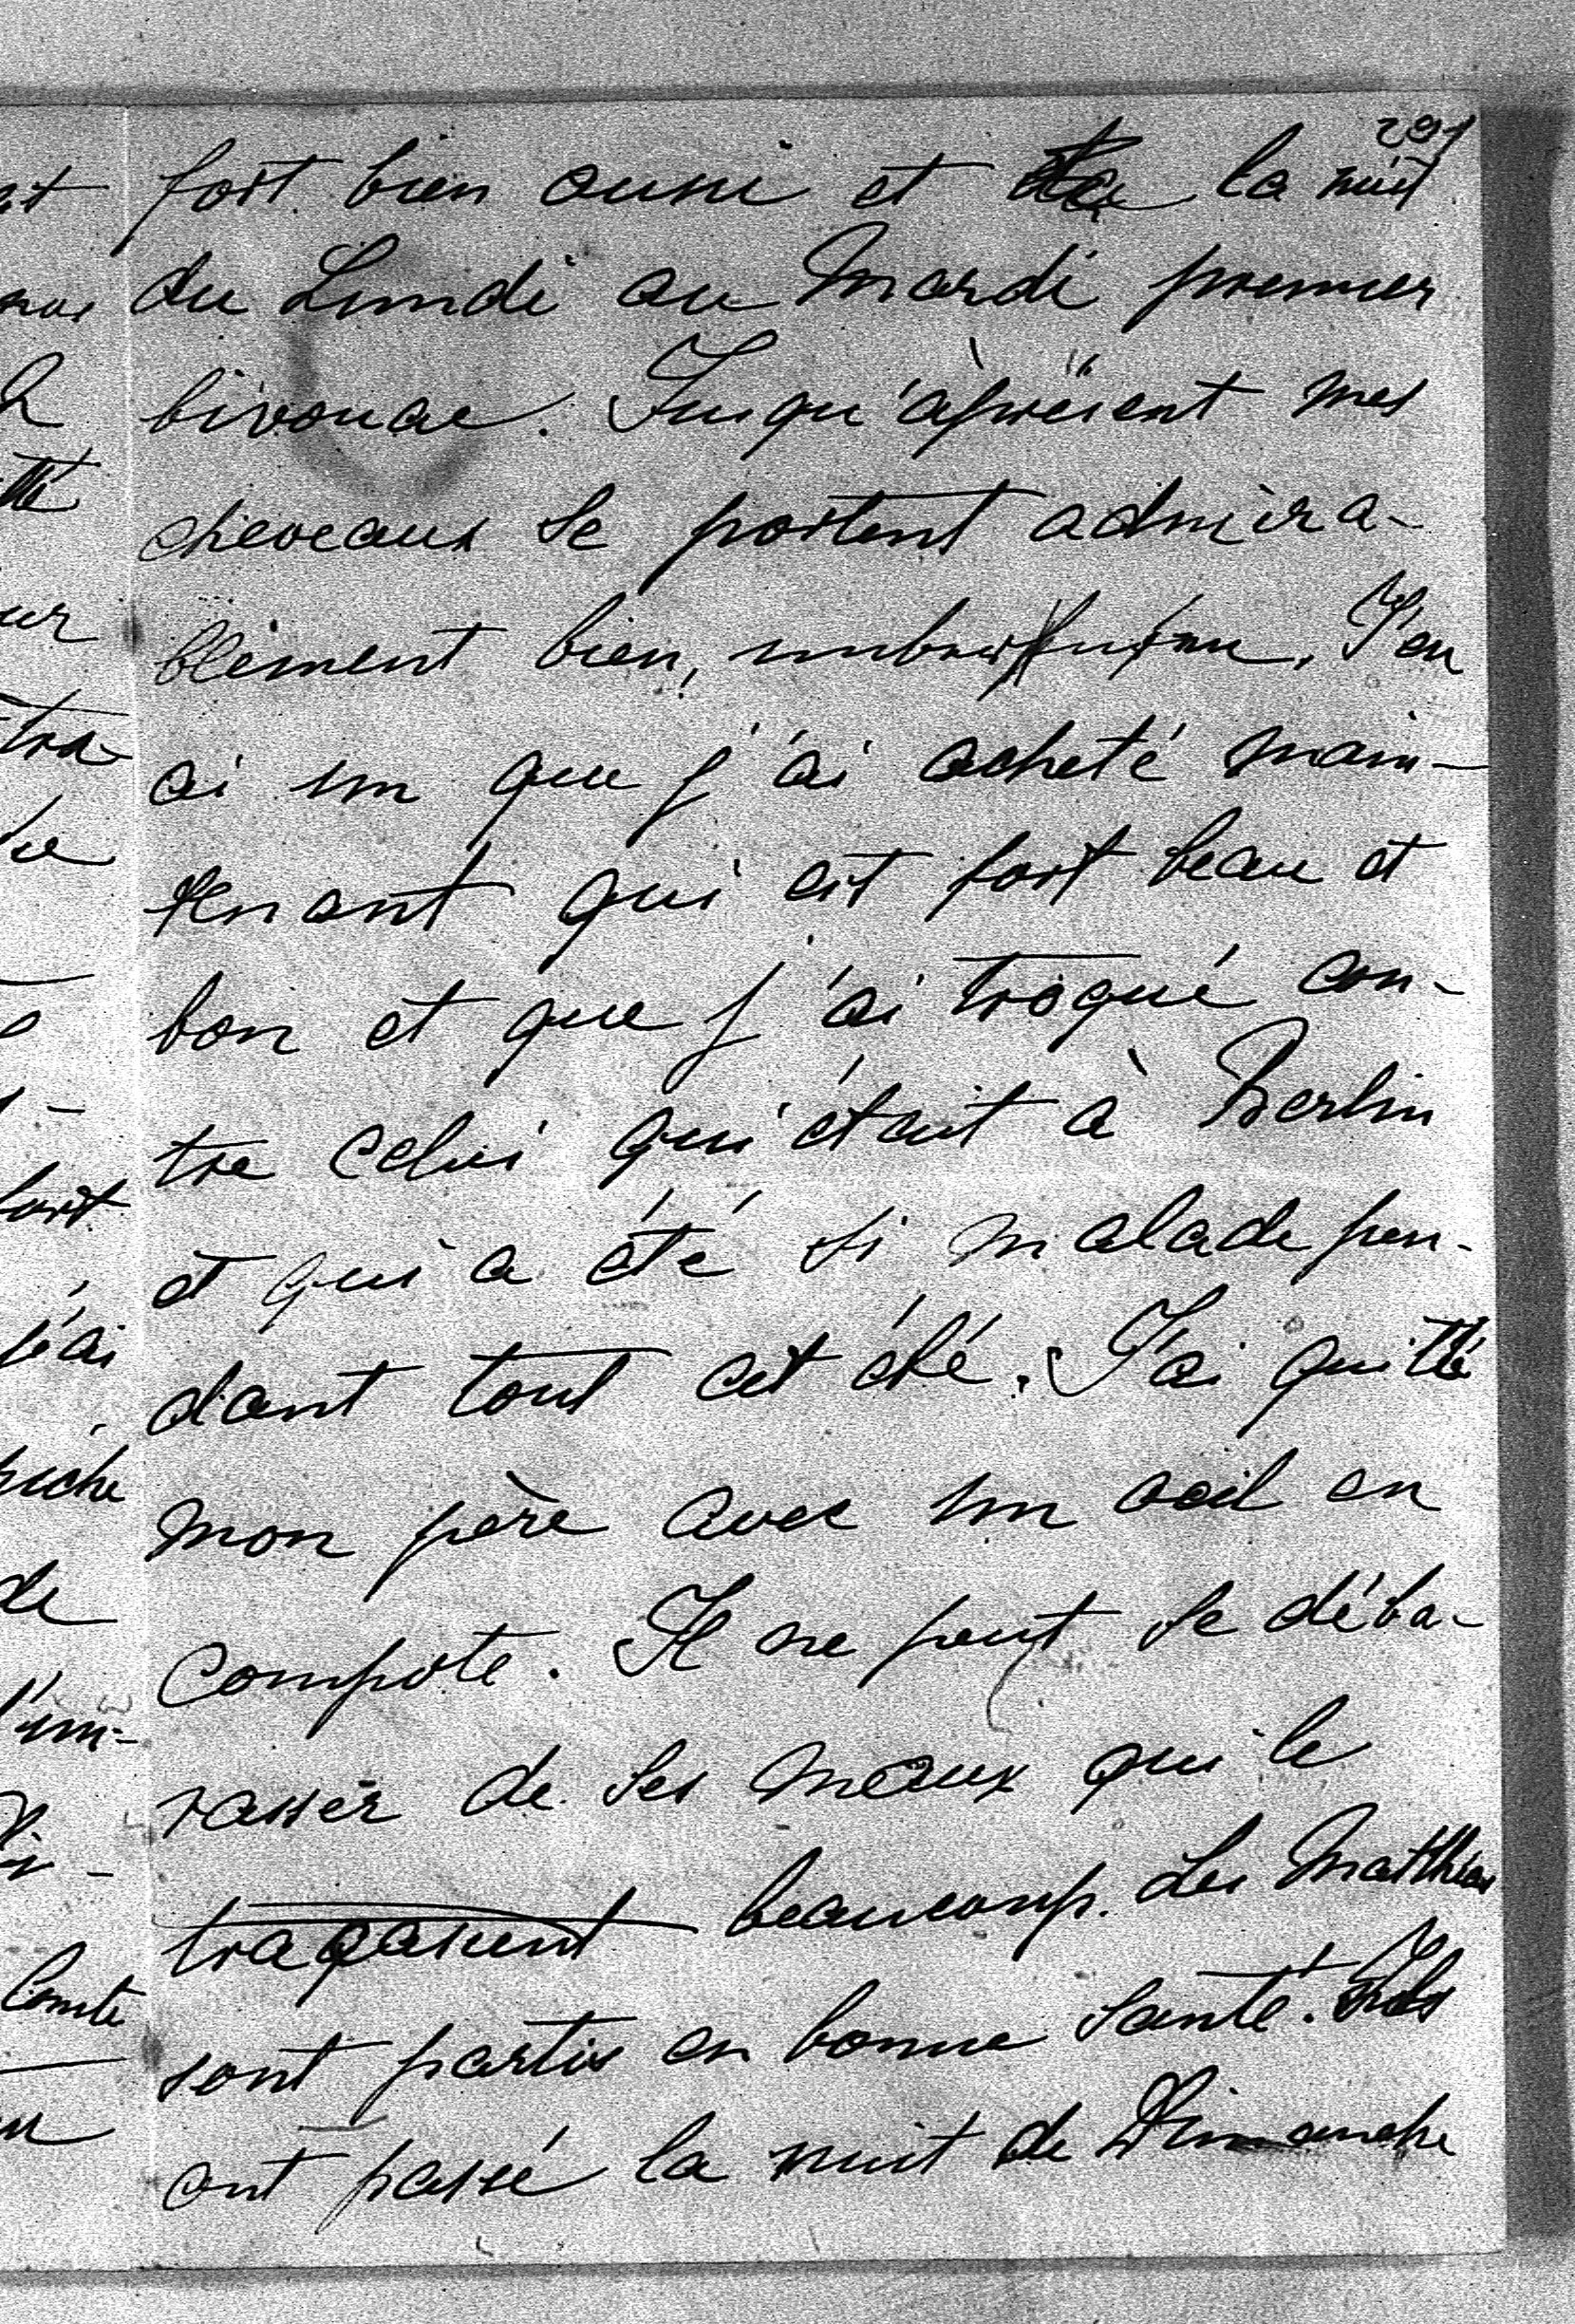 291
fort bien aussi et la nuit
du Lundi au Mardi premier
bivouac. Jusqu'àprésent mes
cheveaux se portent admira-
blement bien, unberufen. J'en
ai un que j'ai acheté main-
tenant qui est fort beau et
bon et que j'ai troqué con-
tre celui qui était à Berlin
et qui a été si malade pen-
dant tout cet été. J'ai quitté
mon père avec un oeil en
compote. Il ne peut se déba-
rasser de ses meaux qui le
traçassent beaucoup. Les Matthias
sont partis en bonne santé. Ils
ont passé la nuit de Dimanche